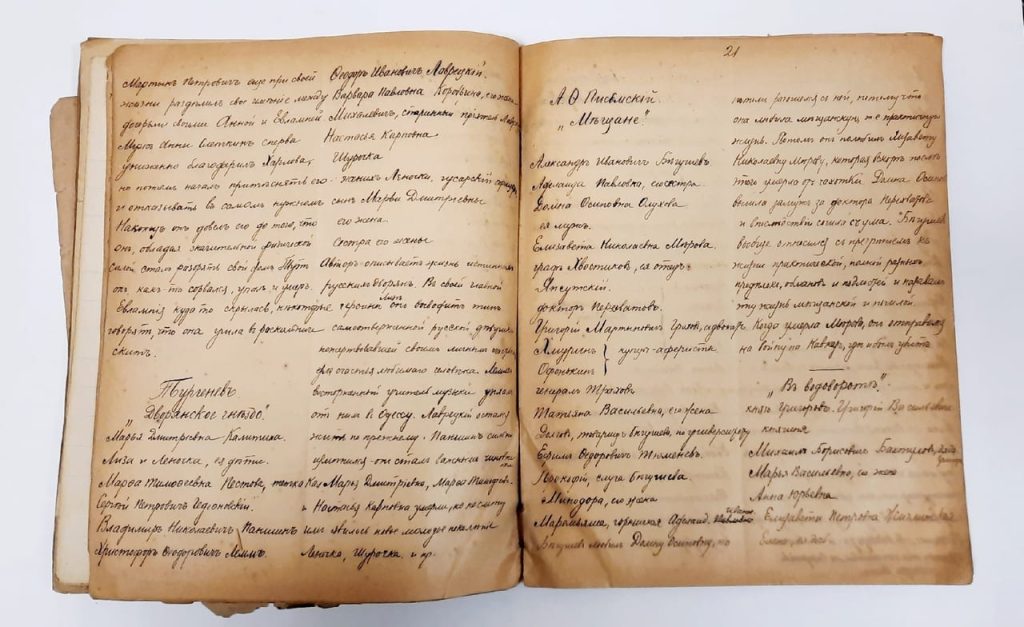 Мартынъ Петровичъ еще при своей
жизни раздѣлилъ свое имѣніе между
дочерьми своими Анной и Евлампіей
Мужъ Анны Слеткинъ сперва
униженно благодарилъ Харлова,
но потомъ началъ притѣснять его
и отказывать въ самомъ нужномъ
Наконецъ онъ довелъ его до того, что
онъ, обладая значительной физической
силой, сталъ разорять свой домъ. Тутъ
онъ какъ-то сорвался, упалъ и умеръ.
Евлампія куда-то скрылась, некоторые
говорятъ, что она ушла в раскольничій
скитъ.
Тургеневъ
"Дворянское гнѣздо"
Марья Дмитріевна Калитина.
Лиза и Леночка, ея дѣти.
Марѳа Тимоѳеевна Пестова, тетка
Сергѣй Петровичъ Гедеоновскій.
Владимиръ Николаевичъ Паншинъ
Христофоръ Ѳеодоровичъ Леммъ.
Ѳеодоръ Ивановичъ Лаврецкій.
Варвара Павловна Коробьина, его жена
Михалевичъ, старинный пріятель
Настасья Карповна
Шурочка
женихъ Леночки, гусарскій
сынъ Марьи Дмитріевны
его жена.
сестра его жены
Авторъ описываетъ жизнь истинныхъ
русскихъ дворянъ. Въ своей главной
героинѣ Лизѣ онъ выводитъ типъ
самоотверженной русской дѣвушки
пожертвовавшей своимъ личнымъ
для счастья любимаго человѣка. Леммъ
восторженный учитель музыки уѣхалъ
отъ нихъ въ Одессу. Лаврецкій остался
жить по прежнему. Паншинъ сильно
измѣнился - онъ сталъ важнымъ
Марья Дмитріевна, Марѳа Тимоѳ.
и Настасья Карповна умерли, но на смѣну
имъ явилось новое молодое поколѣніе
Леночка, Шурочка, и пр.
21
А. Ѳ. Писемскій.
"Мѣщане"
Александръ Ивановичъ Бѣгушевъ
Аделаида Павловна, его сестра
Домна Осиповна Олухова
ея мужъ.
Елизавета Николаевна Мѣрова.
графъ Хвостиковъ, ея отецъ
Янсутскій.
докторъ Перехватовъ.
Григорій Мартыновичъ Грохъ, адвокатъ
Хмуринъ
Офонькинъ } купцы-аферисты
генералъ Трахова
Татьяна Васильевна, его жена
Долговъ, товарищъ Бѣгушева, по университету
Ефимъ Ѳедоровичъ Тюменевъ.
Прокофій, слуга Бѣгушева
Минодора, его жена
Маремьяша, горничная Аделаид. Ивановны
Бѣгушевъ любилъ Домну Осиповну, но
потомъ разошелся съ ней, потому что
она любила мѣщанскую, не практичную
жизнь. Потомъ онъ полюбилъ Елизавету
Николаевну Мѣрову, которая вскорѣ послѣ
этого умерла отъ чахотки. Домна Осиповна
вышла замужъ за доктора Перехватова
и впослѣдствіи сошла съ ума. Бѣгушевъ
вообще относился съ презрѣніемъ къ
жизни практической, полной разныхъ
и подлостей и называлъ
эту жизнь мѣщанской и пошлой.
Когда умерла Мѣрова, онъ отправился
на войну на Кавказъ, гдѣ и былъ убитъ
"Въ водоворотѣ"
князь Григоровъ Григорій Васильевичъ
княгиня
Михаилъ Борисовичъ Бахтуловъ,
Марья Васильевна, его жена
Анна Юрьевна
Елизавета Петровна Жиглинская
Елена, ея дочь